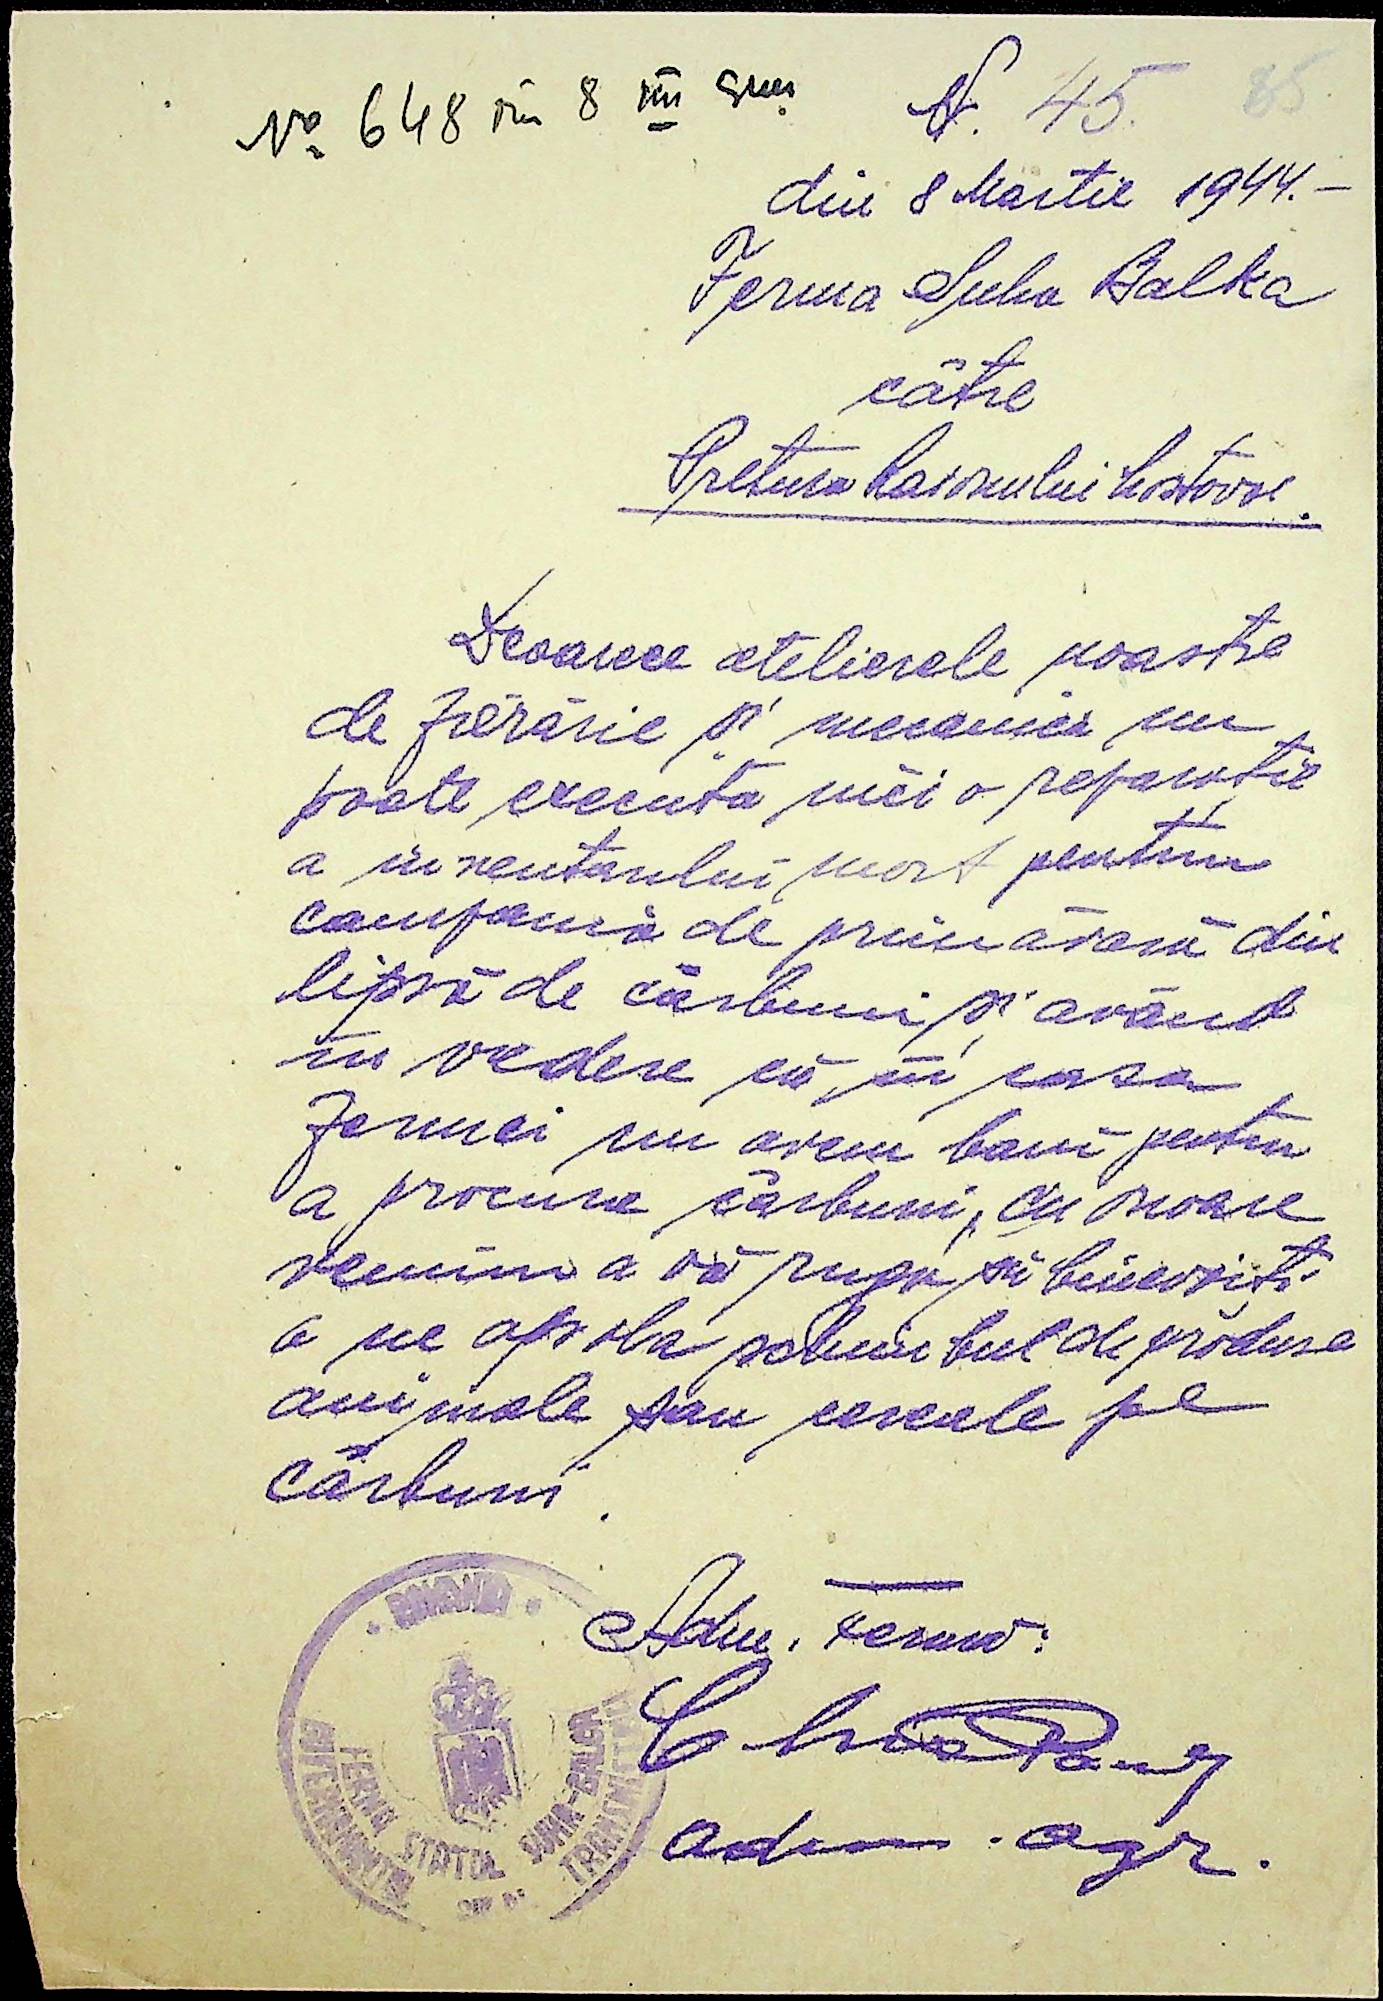 No 648 din 8 III
N. 45. 85
din 8 Martie 1944.-
Ferma Suha Balka
către
Pretura Raionului Rostovo.
Deoarece atelierele noastre
de fierărie și mecanică nu
poate executa nici o reparație
a inventarului mort pentru
campania de primăvară din
lipsă de cărbuni și având
în vedere că, în casa
fermei nu avem bani pentru
a procura cărbuni, cu onoare
venim a vă ruga să binevoiți
a ne aproba schimbul de produse
animale sau cereale pe
cărbuni.
Adm. Ferma:
adm. agr.
ROMANIA
GUVERNAMANTUL TRANSNISTRIEI
FERMA STATUL SUHA-BALCA